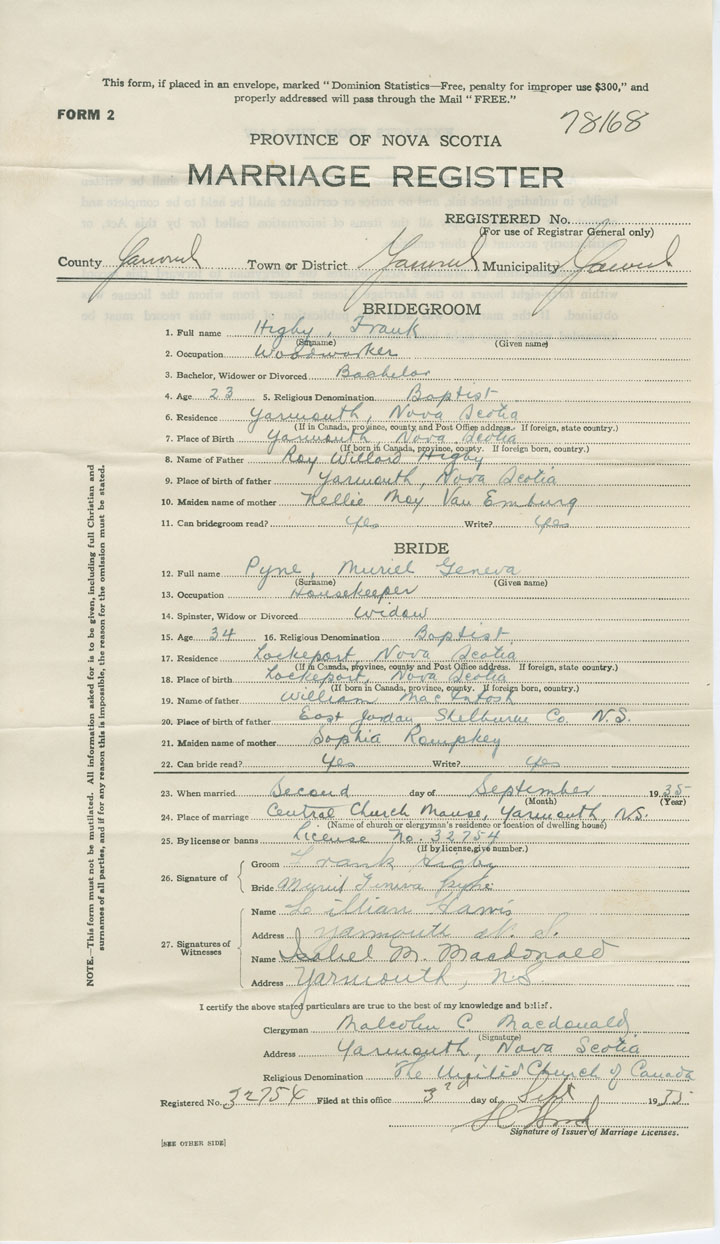 This form, if placed in an envelope, marked "Dominion Statistics—Free, penalty for improper use $300," and
properly addressed will pass through the Mail "FREE."
FORM 2
78168
PROVINCE OF NOVA SCOTIA
MARRIAGE REGISTER
REGISTERED No.
(For use of Registrar General only)
County Yarmouth Town or District Yarmouth Municipality Yarmouth
BRIDEGROOM
1. Full name Higby, Frank
(Surname) (Given name)
2. Occupation Woodworker
3. Bachelor, Widower or Divorced Bachelor
4. Age 23 5. Religious Denomination Baptist
6. Residence Yarmouth, Nova Scotia
(If in Canada, province, county and Post Office address. If foreign, state country.)
7. Place of Birth Yarmouth, Nova Scotia
(If born in Canada, province, county. If foreign born, country.)
8. Name of Father Roy Willard Higby
9. Place of birth of father Yarmouth, Nova Scotia
10. Maiden name of mother Nellie May Van Emburg
11. Can bridegroom read? Yes Write? Yes
BRIDE
12. Full name Pyne, Muriel Geneva
(Surname) (Given name)
13. Occupation Housekeeper
14. Spinster, Widow or Divorced Widow
15. Age 34 16. Religious Denomination Baptist
17. Residence Lockeport, Nova Scotia
(If in Canada, province, county and Post Office address. If foreign, state country.)
18. Place of birth Lockeport, Nova Scotia
(If born in Canada, province, county. If foreign born, country.)
19. Name of father William MacIntosh
20. Place of birth of father East Jordan, Shelburne Co. N.S.
21. Maiden name of mother Sophia Rompkey
22. Can bride read? Yes Write? Yes
23. When married Second day of September 1935
(Month) (Year)
24. Place of marriage Central Church Manse, Yarmouth, N.S.
(Name of church or clergyman's residence or location of dwelling house)
25. By license or banns License No. 32754
(If by license, give number.)
26. Signature of
Groom Frank Higby
Bride Muriel Geneva Pyne
27. Signatures of Witnesses
Name Lillian
Address Yarmouth N. S.
Name Isabel M. Macdonald
Address Yarmouth, N.S
I certify the above stated particulars are true to the best of my knowledge and belief.
Clergyman Malcolm C. Macdonald
(Signature)
Address Yarmouth, Nova Scotia
Religious Denomination The United Church of Canada
Registered No. 32754 Filed at this office 3rd day of Sept 1935
Signature of Issuer of Marriage Licenses.
[SEE OTHER SIDE]
NOTE.—This form must not be mutilated. All information asked for is to be given, including full Christian and
surnames of all parties, and if for any reason this is impossible, the reason for the omission must be stated.